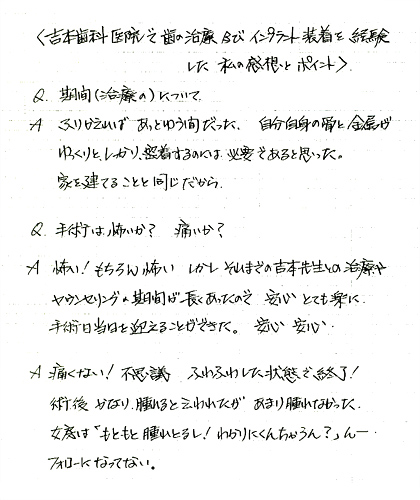 〈吉本歯科医院にて歯の治療及びインプラント装着を経験
した私の感想とポイント〉
Q. 期間(治療の)について
A ふりかえれば あっとゆう間だった. 自分自身の骨と金属が
ゆっくりと、しっかり、密着するのには必要であると思った。
家を建てることと同じだから.
Q. 手術は怖いか? 痛いか?
A 怖い! もちろん怖い しかし それまでの吉本先生との治療や
カウンセリングの期間が長くあったので 安心 とても楽に
手術日当日を迎えることができた。 安心 安心.
A 痛くない! 不思議 ふわふわした状態で終了!
術後 かなり腫れると云われたが あまり腫れなかった.
女房は「もともと腫れとるし! わかりにくんちゃうん?」んー
フォローになってない。